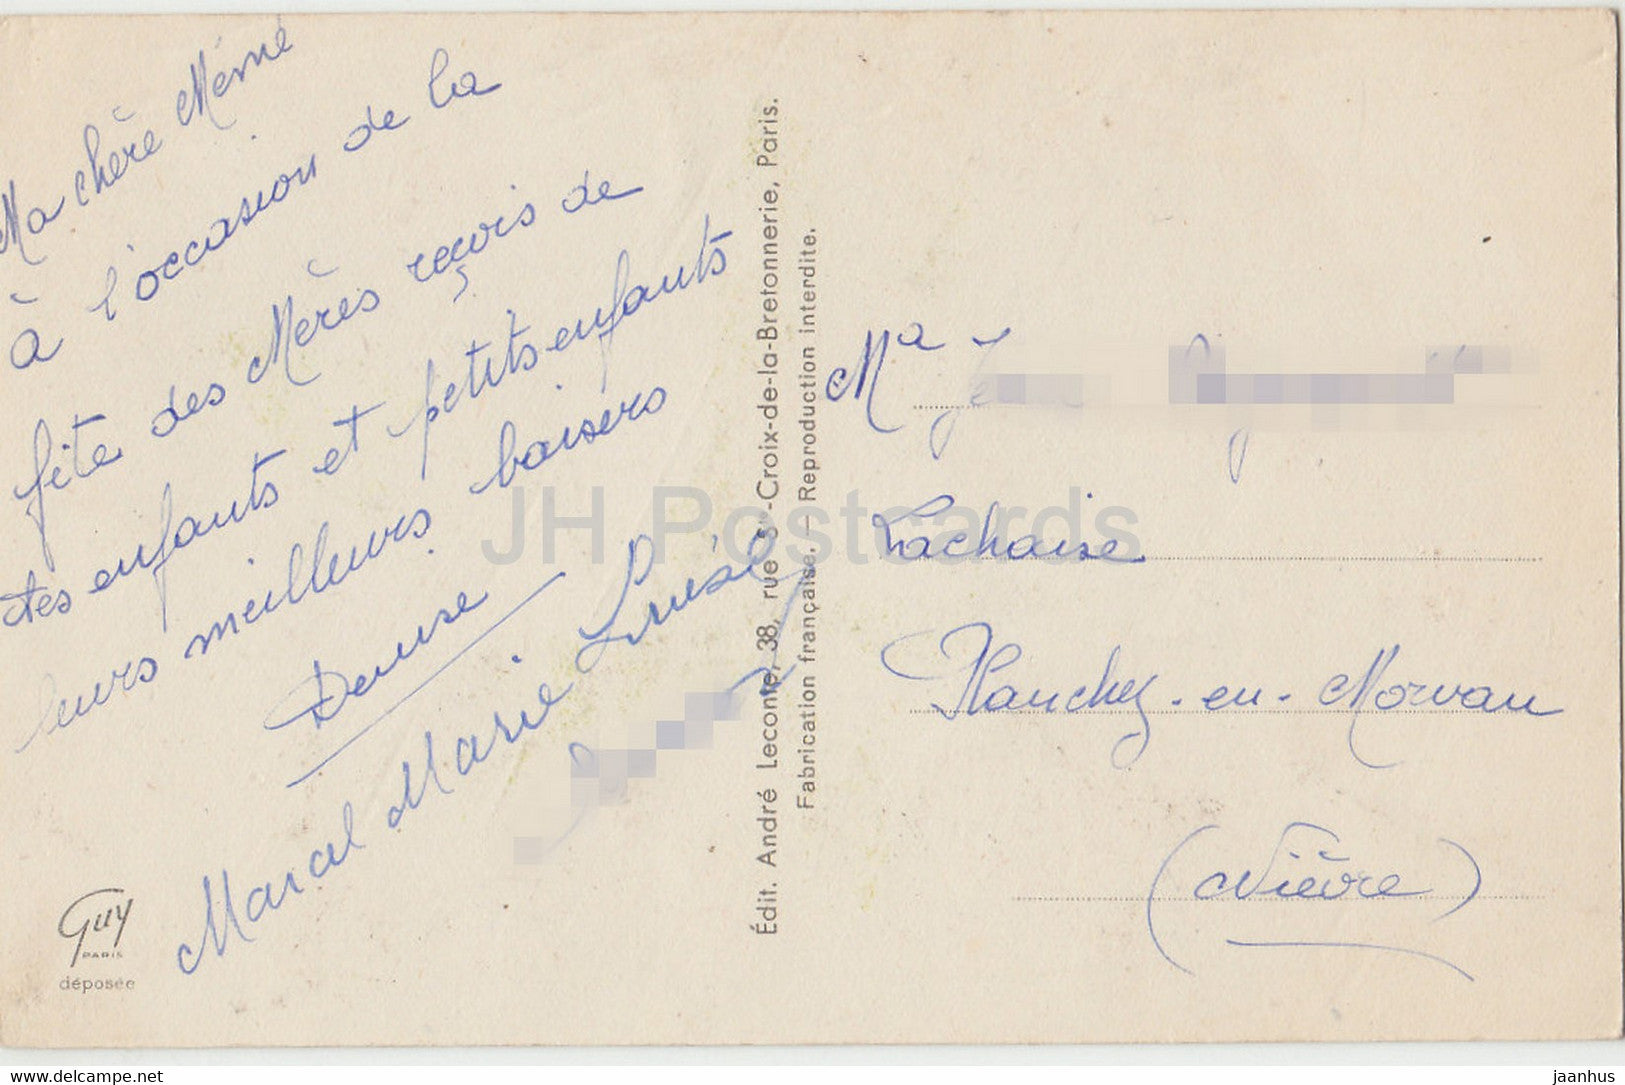 Ma chère Mémé
à l'occasion de la
fête des Mères reçois de
tes enfants et petits enfants
leurs meilleurs baisers
Denise
Marcel Marie Louise
Guy
PARIS
déposée
Édit. André Leconte, 38, rue Ste-Croix-de-la-Bretonnerie, Paris.
Fabrication française. — Reproduction interdite.
Lachaise
Planchez-en-Morvan
(Nièvre)
JH Postcards
www.delcampe.net
jaanhus